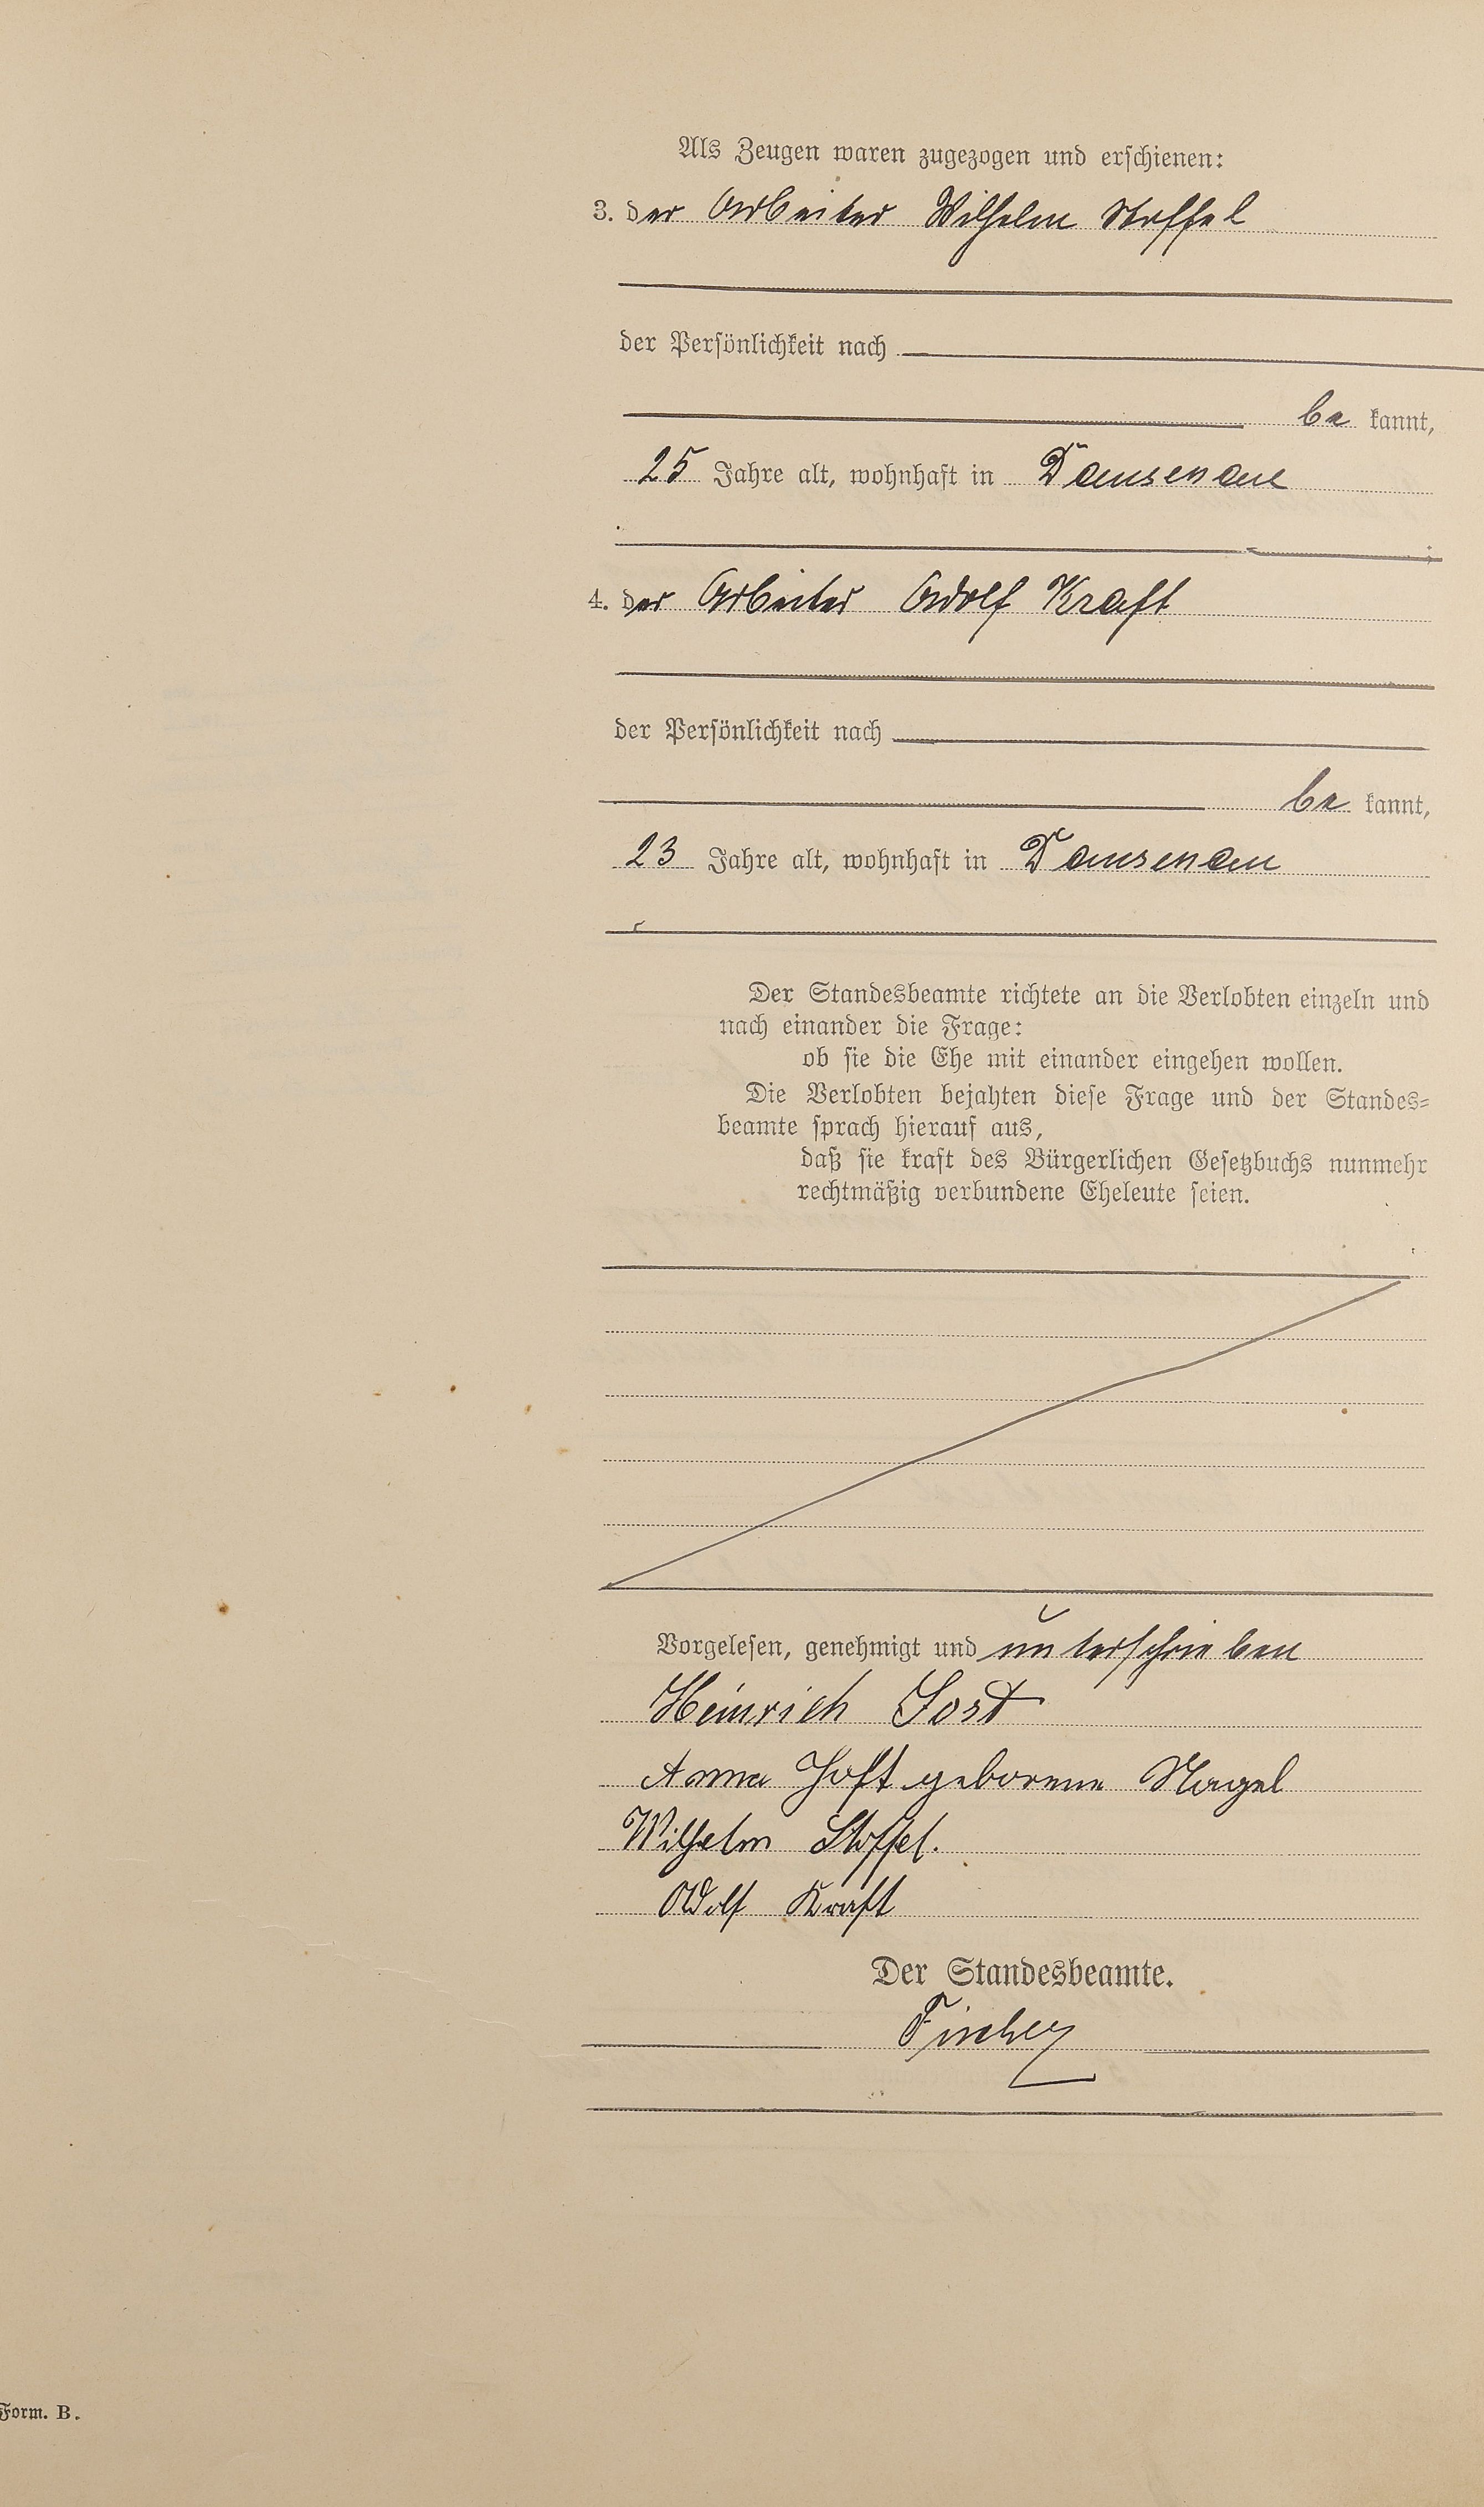 Als Zeugen waren zugezogen und erschienen:
3. der Arbeiter Wilhelm Stoffel
der Persönlichkeit nach
be kannt,
25 Jahre alt, wohnhaft in Dausenau
;
4. der Arbeiter Adolf Kraft
der Persönlichkeit nach
be kannt,
23 Jahre alt, wohnhaft in Dausenau
Der Standesbeamte richtete an die Verlobten einzeln und
nach einander die Frage:
ob sie die Ehe mit einander eingehen wollen.
Die Verlobten bejahten diese Frage und der Standes=
beamte sprach hierauf aus,
daß sie kraft des Bürgerlichen Gesetzbuchs nunmehr
rechtmäßig verbundene Eheleute seien.
Vorgelesen, genehmigt und unterschrieben
Heinrich Jost
Anna Jost geborene Nagel
Wilhelm Stoffel.
Adolf Kraft
Der Standesbeamte.
Fischer
Form. B.